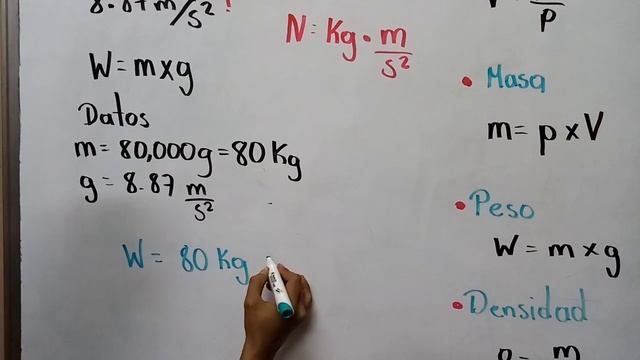 8.87 m/s² !
N = Kg · m/s²
W = m x g
Datos
m = 80,000g = 80 Kg
g = 8.87 m/s²
W = 80 Kg
V = /p
• Masa
m = p x V
• Peso
W = m x g
• Densidad
p = m